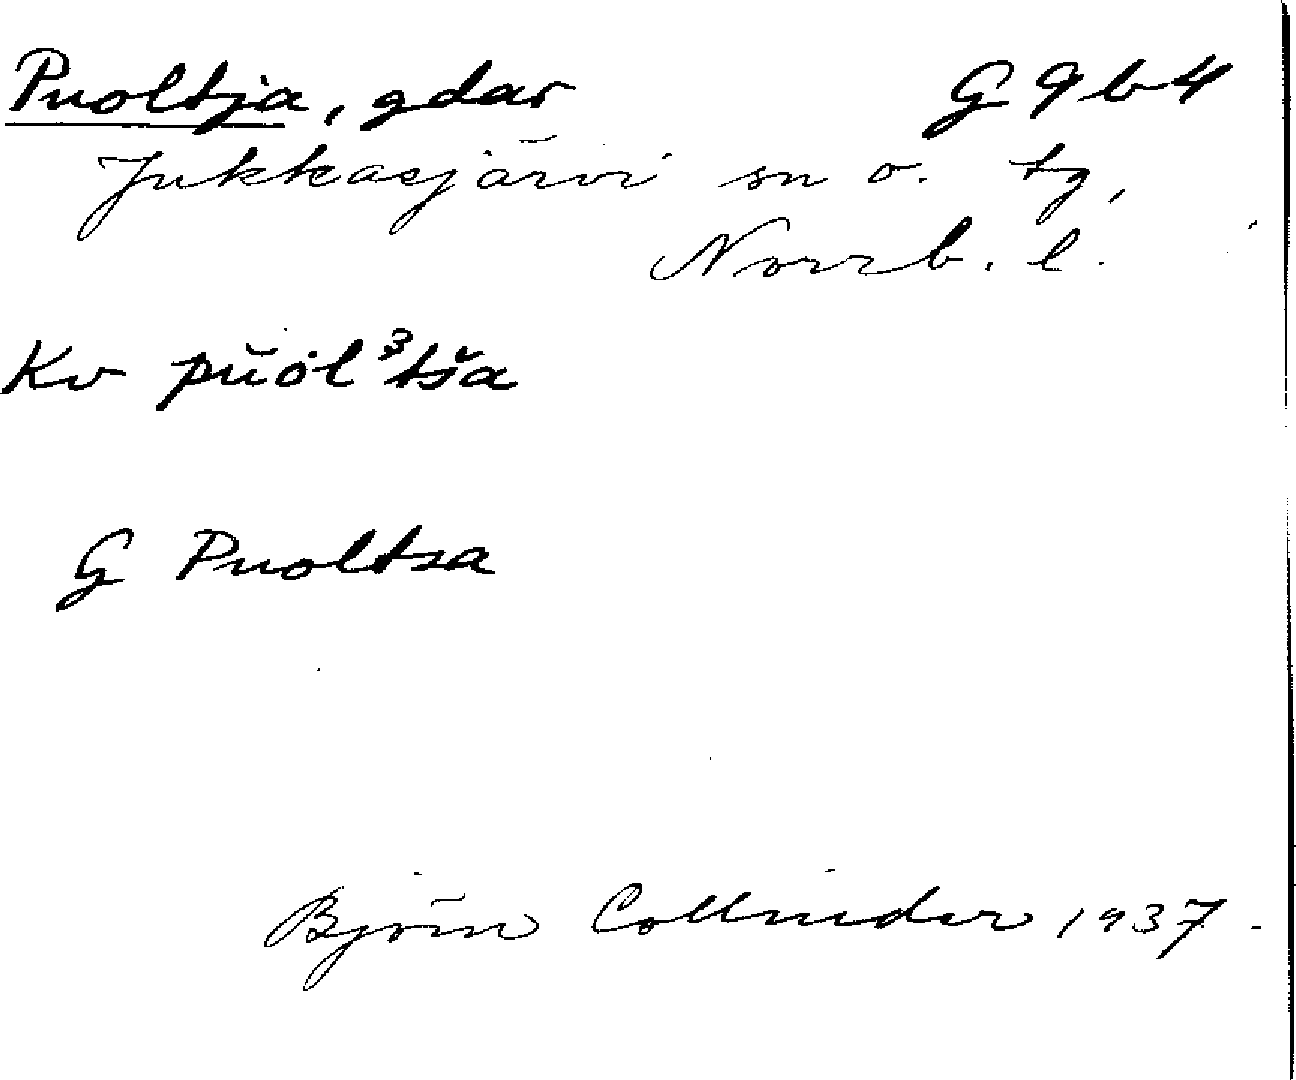 Puoltja, gdar G 9 b 4
Jukkasjärvi sn o. tg,
Norrb. l.
Kv pŭòl³tša
G Puoltsa
Björn Collinder 1937